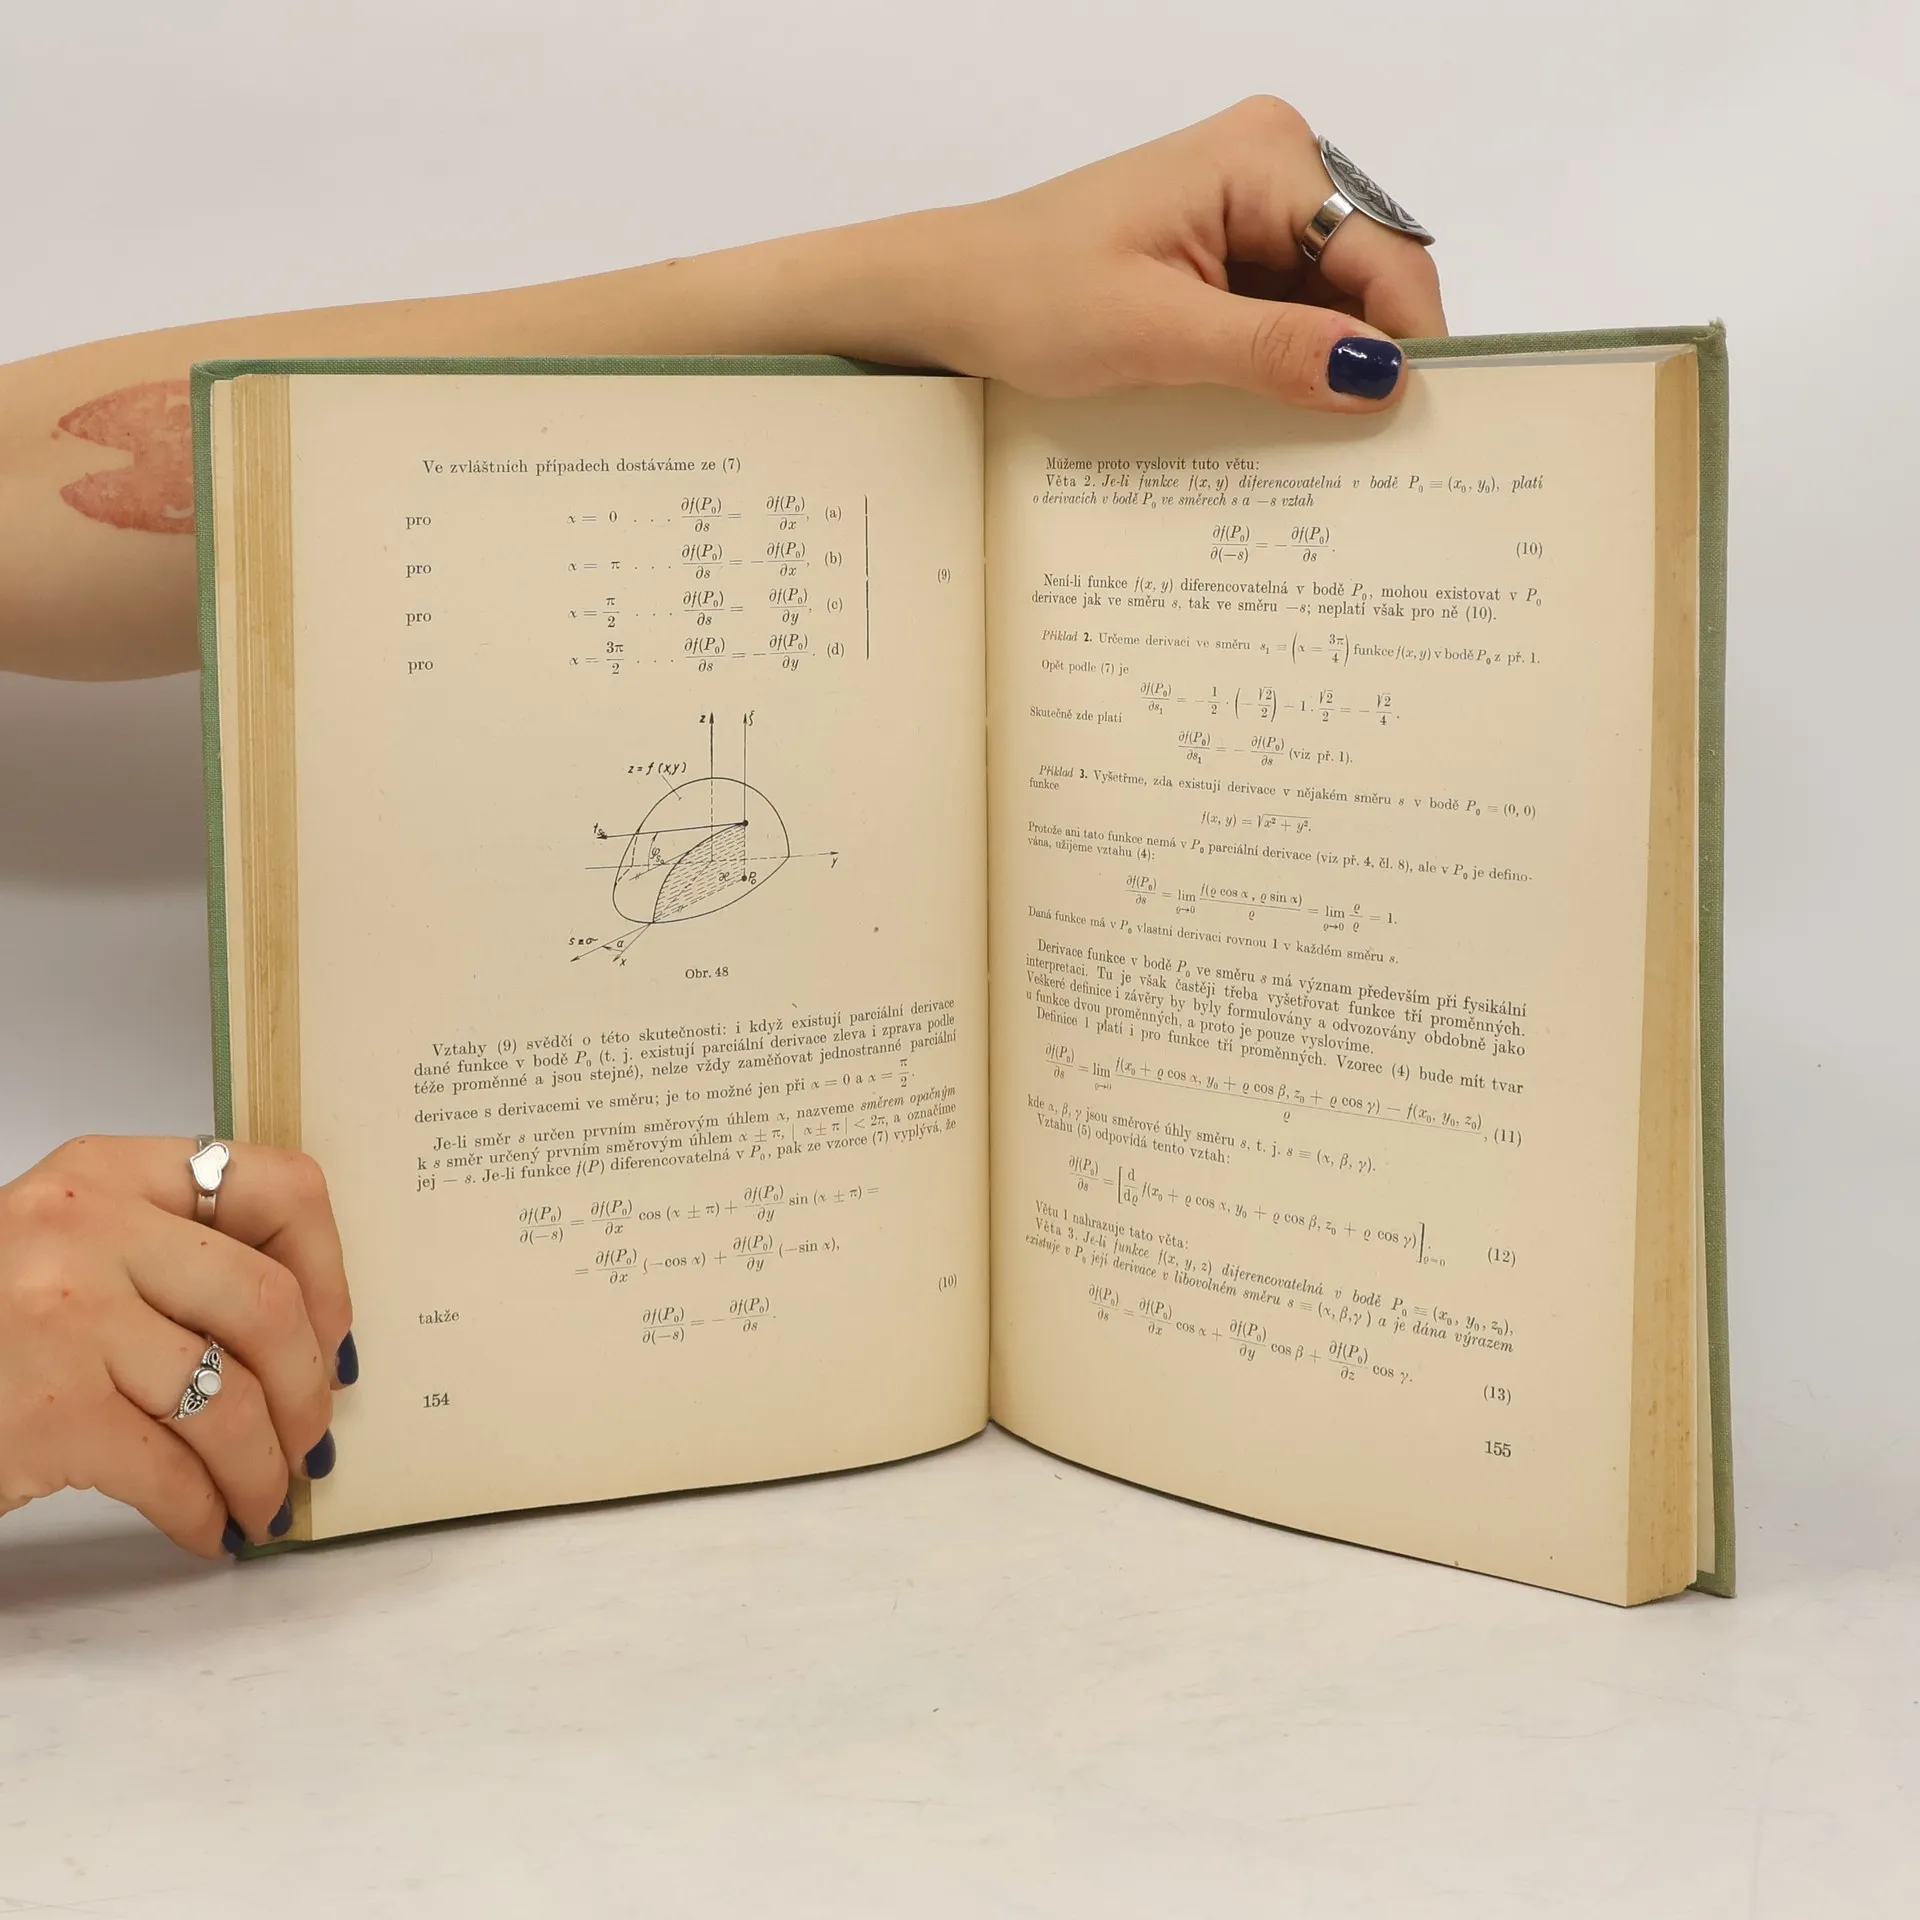 Ve zvláštních případech dostáváme ze (7)
pro α = 0 . . . ∂f(P₀)/∂s = ∂f(P₀)/∂x, (a)
pro α = π . . . ∂f(P₀)/∂s = −∂f(P₀)/∂x, (b)
(9)
pro α = π/2 . . . ∂f(P₀)/∂s = ∂f(P₀)/∂y, (c)
pro α = 3π/2 . . . ∂f(P₀)/∂s = −∂f(P₀)/∂y. (d)
z ζ
z = f (x,y)
y
P₀
s≡σ α
x
Obr. 48
Vztahy (9) svědčí o této skutečnosti: i když existují parciální derivace
dané funkce v bodě P₀ (t. j. existují parciální derivace zleva i zprava podle
téže proměnné a jsou stejné), nelze vždy zaměňovat jednostranné parciální
derivace s derivacemi ve směru; je to možné jen při α = 0 a α = π/2.
Je-li směr s určen prvním směrovým úhlem α, nazveme směrem opačným
k s směr určený prvním směrovým úhlem α ± π, | α ± π | < 2π, a označíme
jej — s. Je-li funkce f(P) diferencovatelná v P₀, pak ze vzorce (7) vyplývá, že
∂f(P₀)/∂(—s) = ∂f(P₀)/∂x cos (α ± π) + ∂f(P₀)/∂y sin (α ± π) =
= ∂f(P₀)/∂x (—cos α) + ∂f(P₀)/∂y (—sin α),
(10)
takže ∂f(P₀)/∂(—s) = − ∂f(P₀)/∂s.
154
Můžeme proto vyslovit tuto větu:
Věta 2. Je-li funkce f(x, y) diferencovatelná v bodě P₀ ≡ (x₀, y₀), platí
o derivacích v bodě P₀ ve směrech s a —s vztah
∂f(P₀)/∂(—s) = − ∂f(P₀)/∂s. (10)
Není-li funkce f(x, y) diferencovatelná v bodě P₀, mohou existovat v P₀
derivace jak ve směru s, tak ve směru —s; neplatí však pro ně (10).
Příklad 2. Určeme derivaci ve směru s₁ ≡ (α = 3π/4) funkce f(x, y) v bodě P₀ z př. 1.
Opět podle (7) je
∂f(P₀)/∂s₁ = − 1/2 . (− √2/2) − 1 . √2/2 = − √2/4.
Skutečně zde platí
∂f(P₀)/∂s₁ = − ∂f(P₀)/∂s (viz př. 1).
Příklad 3. Vyšetřme, zda existují derivace v nějakém směru s v bodě P₀ = (0, 0)
funkce
f(x, y) = √x² + y².
Protože ani tato funkce nemá v P₀ parciální derivace (viz př. 4, čl. 8), ale v P₀ je defino-
vána, užijeme vztahu (4):
∂f(P₀)/∂s = lim ϱ→0 f(ϱ cos α, ϱ sin α)/ϱ = lim ϱ→0 ϱ/ϱ = 1.
Daná funkce má v P₀ vlastní derivaci rovnou 1 v každém směru s.
Derivace funkce v bodě P₀ ve směru s má význam především při fysikální
interpretaci. Tu je však častěji třeba vyšetřovat funkce tří proměnných.
Veškeré definice i závěry by byly formulovány a odvozovány obdobně jako
u funkce dvou proměnných, a proto je pouze vyslovíme.
Definice 1 platí i pro funkce tří proměnných. Vzorec (4) bude mít tvar
∂f(P₀)/∂s = lim ϱ→0 f(x₀ + ϱ cos α, y₀ + ϱ cos β, z₀ + ϱ cos γ) — f(x₀, y₀, z₀)/ϱ, (11)
kde α, β, γ jsou směrové úhly směru s, t. j. s ≡ (α, β, γ).
Vztahu (5) odpovídá tento vztah:
∂f(P₀)/∂s = [d/dϱ f(x₀ + ϱ cos α, y₀ + ϱ cos β, z₀ + ϱ cos γ)]ϱ=0. (12)
Větu 1 nahrazuje tato věta:
Věta 3. Je-li funkce f(x, y, z) diferencovatelná v bodě P₀ ≡ (x₀, y₀, z₀),
existuje v P₀ její derivace v libovolném směru s ≡ (α, β, γ) a je dána výrazem
∂f(P₀)/∂s = ∂f(P₀)/∂x cos α + ∂f(P₀)/∂y cos β + ∂f(P₀)/∂z cos γ. (13)
155